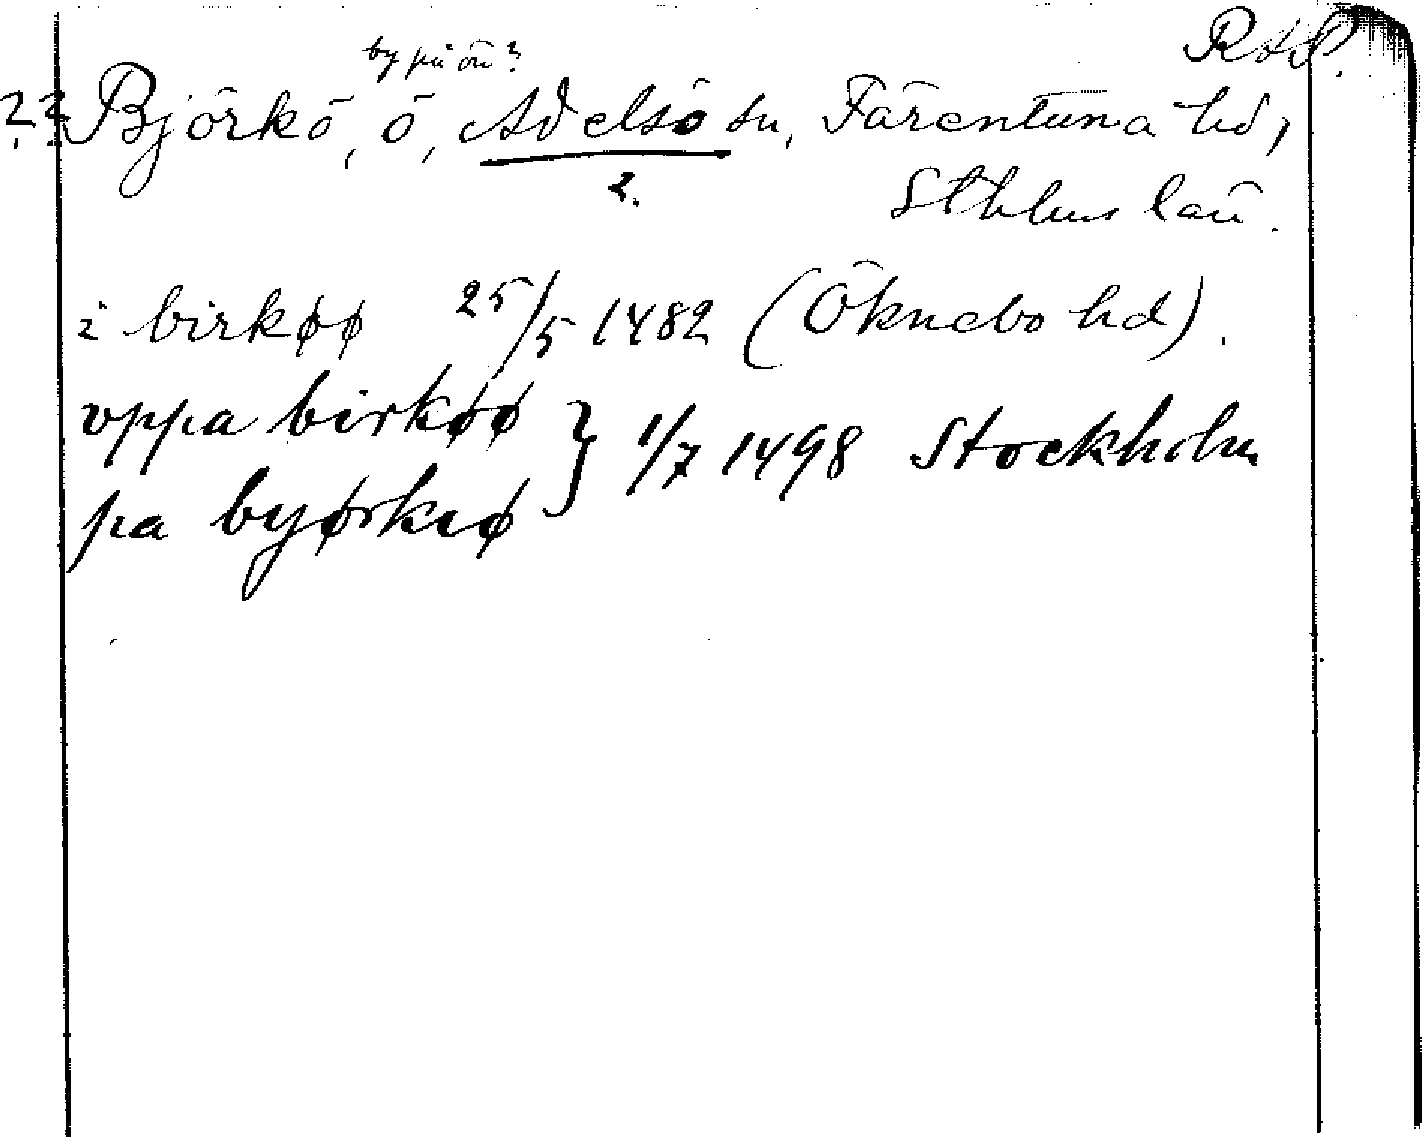 RAP.
by på ön?
?? Björkö, ö, Adelsö sn, Färentuna hd,
2.
Sthlms län.
i birkøø 25/5 1482 (Öknebo hd).
vppa birkøø } 1/7 1498 Stockholm
pa byørkiø